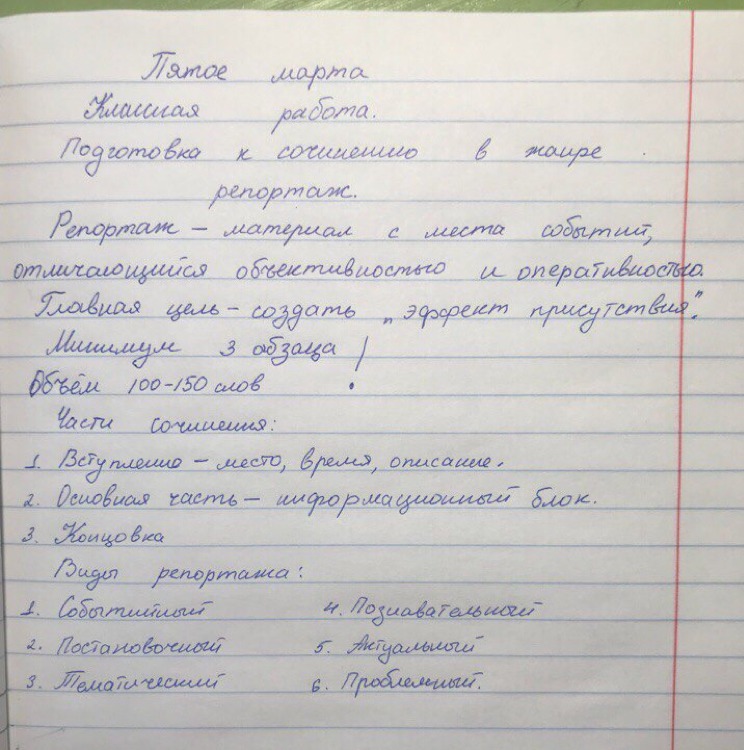 Пятое марта
Классная работа.
Подготовка к сочинению в жанре
репортаж.
Репортаж – материал с места событий,
отличающийся объективностью и оперативностью.
Главная цель – создать „эффект присутствия".
Минимум 3 абзаца !
Объём 100-150 слов
Части сочинения:
1. Вступление – место, время, описание.
2. Основная часть – информационный блок.
3. Концовка
Виды репортажа:
1. Событийный 4. Познавательный
2. Постановочный 5. Актуальный
3. Тематический 6. Проблемный.